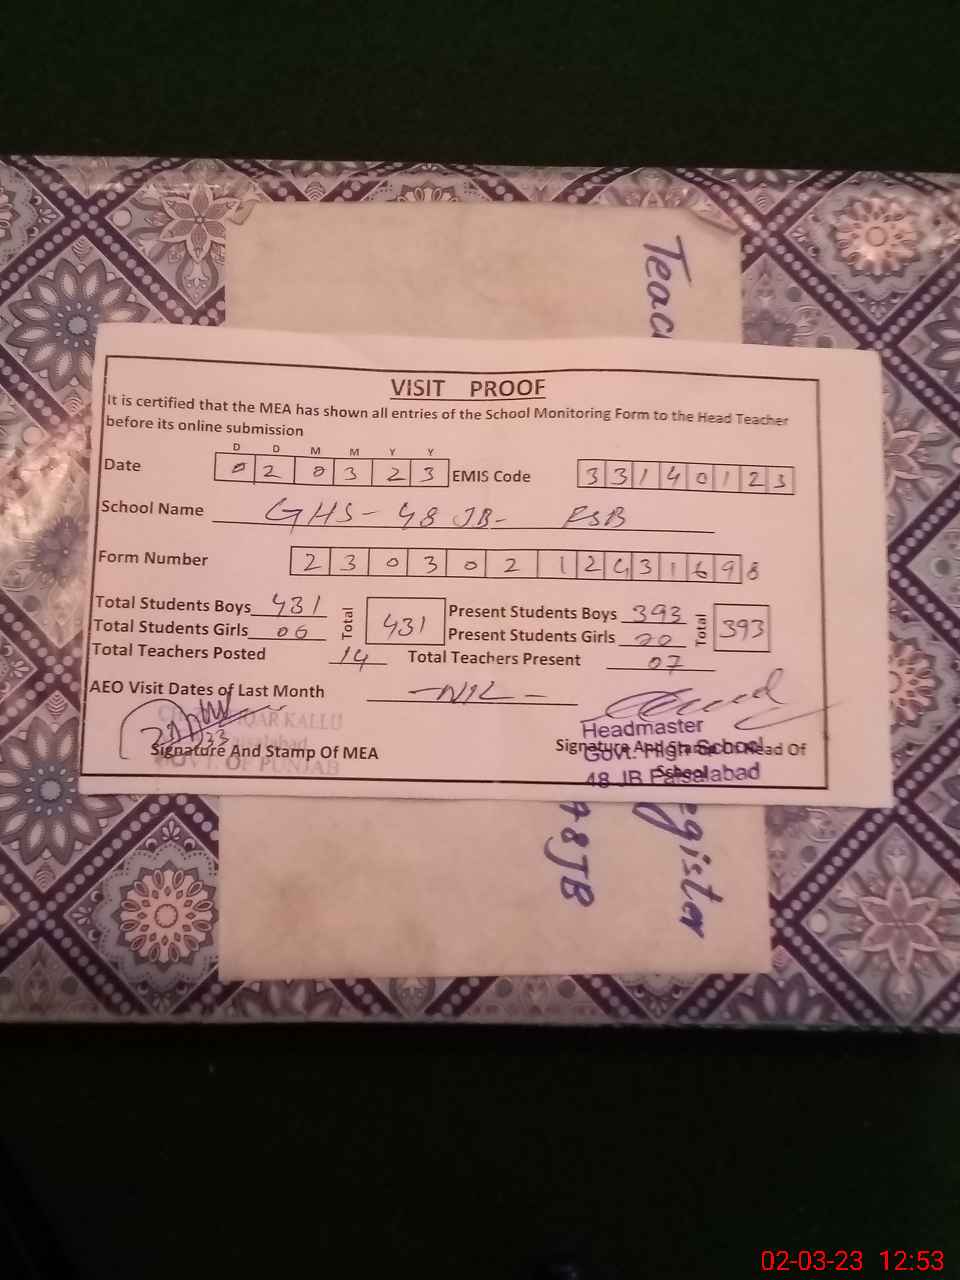 Teac
VISIT PROOF
It is certified that the MEA has shown all entries of the School Monitoring Form to the Head Teacher
before its online submission
D D M M Y Y
Date 0 2 0 3 2 3 EMIS Code 3 3 1 4 0 1 2 3
School Name GHS - 48 JB - FSB
Form Number 2 3 0 3 0 2 1 2 4 3 1 6 9 8
Total Students Boys 431 Total 431 Present Students Boys 393 Total 393
Total Students Girls 00 Present Students Girls 00
Total Teachers Posted 14 Total Teachers Present 07
AEO Visit Dates of Last Month - NIL -
KALLU
Faisalabad
GOVT. OF PUNJAB
Signature And Stamp Of MEA
Headmaster
Signature And Stamp Of Head Of
School
Govt. High School
48 JB Faisalabad
egister
48JB
02-03-23 12:53